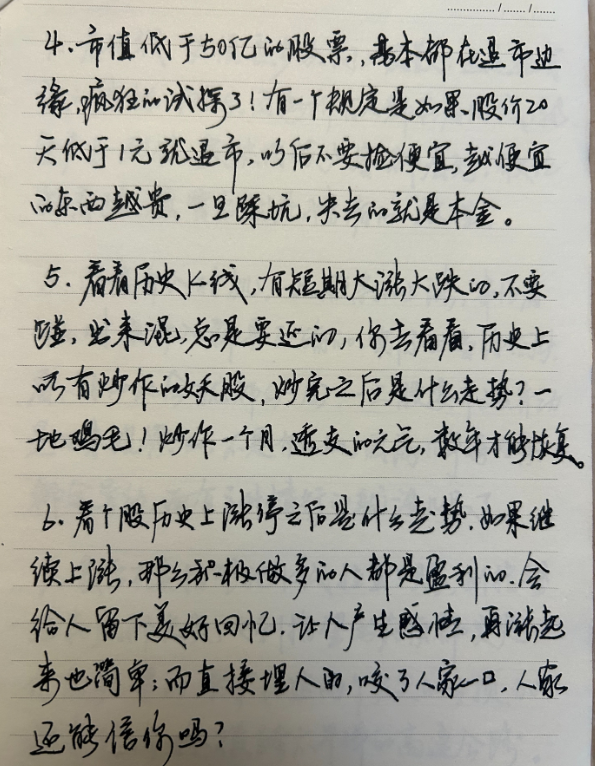 4. 市值低于50亿的股票，基本都在退市边
缘，疯狂的试探了！有一个规定是如果股价20
天低于1元就退市，以后不要捡便宜，越便宜
的东西越贵，一旦踩坑，失去的就是本金。
5. 看看历史K线，有短期大涨大跌的，不要
碰，出来混，总是要还的，你去看看，历史上
所有炒作的妖股，炒完之后是什么走势？一
地鸡毛！炒作一个月，透支的元气，数年才能恢复。
6. 看个股历史上涨停之后是什么走势，如果继
续上涨，那么积极做多的人都是盈利的，会
给人留下美好回忆，让人产生感情，再涨起
来也简单；而直接埋人的，咬了人家一口，人家
还能信你吗？